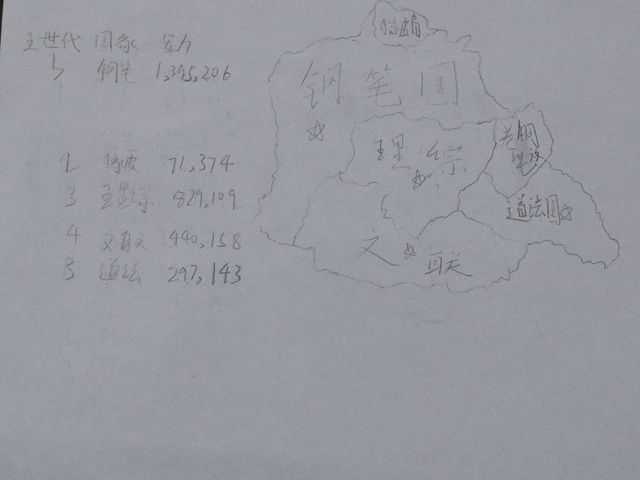 王世代 国家 军力
5 钢笔 1,395,206
2 橡皮 71,374
3 理综 829,109
4 文联 440,158
5 道法 297,143
橡皮
钢笔国
理综
羌钢笔
道法国
文联